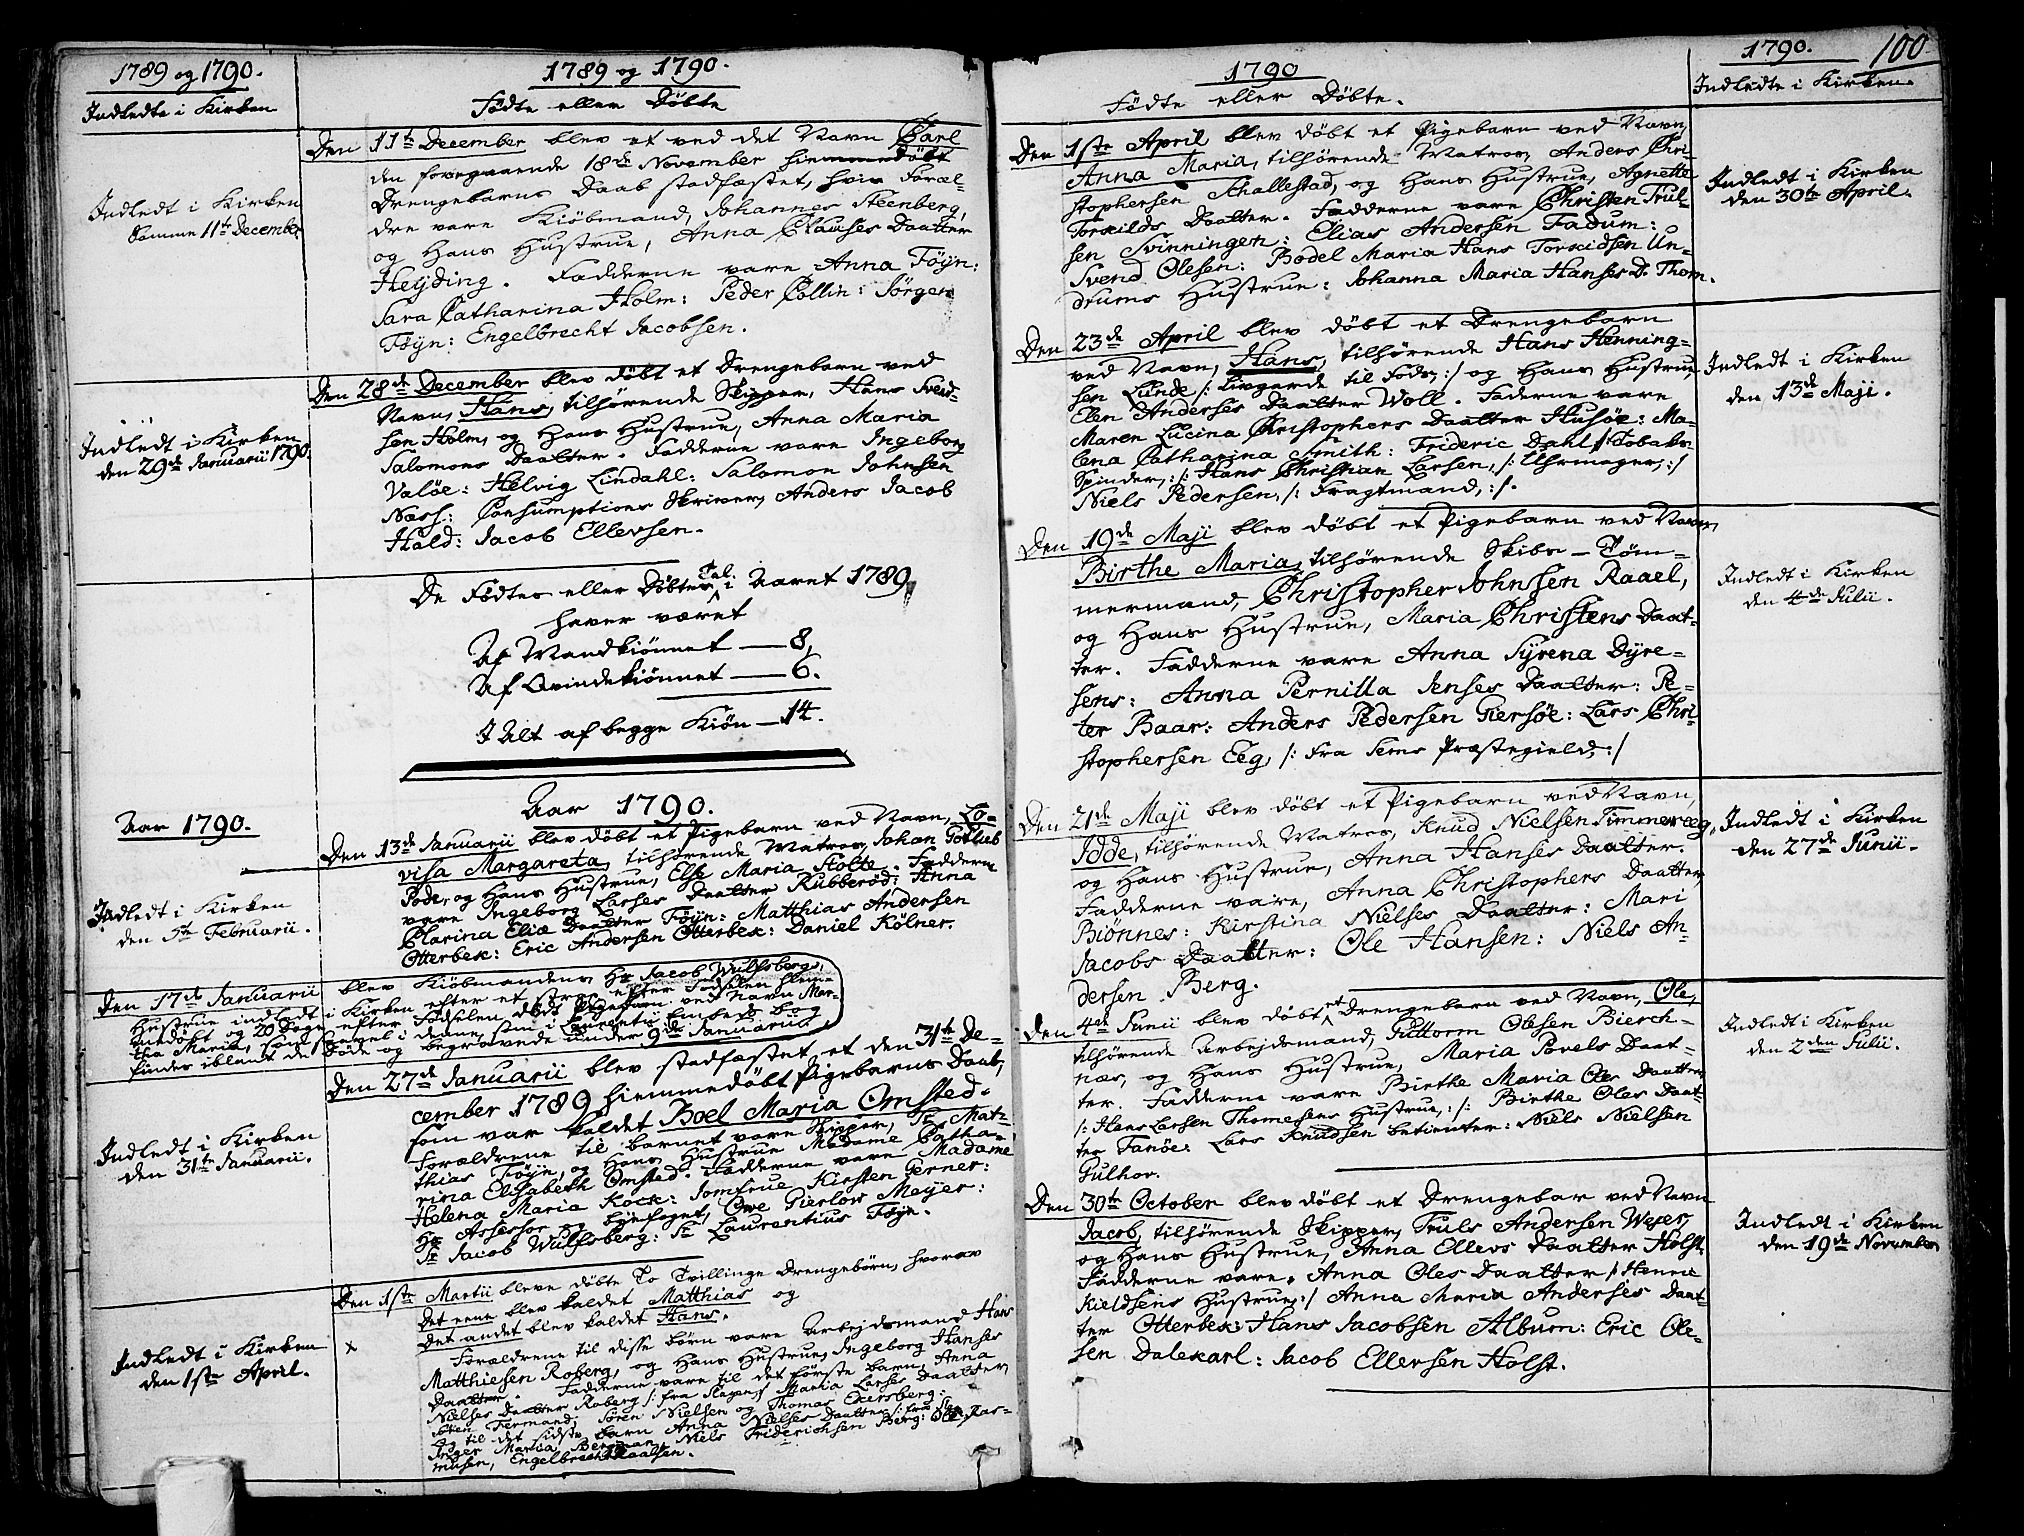 1789 og 1790.
Indledte i Kirken
1789 og 1790.
Födte eller Döbte
Den 11te December blev et ved det Navn Carl
den foregaaende 18de November hiemmedöbt
Drengebarns Daab stadfæstet, hvis Foræl-
dre vare Kiöbmand, Johannes Steenberg,
og Hans Hustrue, Anna Clauses Daatter
Heyding. Fadderne vare Anna Föyn:
Sara Catharina Holm: Peder Collin: Jörgen
Föyn: Engelbrecht Jacobsen.
Indledt i Kirken
Samme 11te December.
Den 28de December blev döbt et Drengebarn ved
Navn, Hans, tilhörende Skipper, Hans Svend-
sen Holm, og Hans Hustrue, Anna Maria
Salomons Daatter. Fadderne vare Ingeborg
Valöe: Helvig Lindahl: Salomon Johnsen
Næss: Consumptions Skriver, Anders Jacob
Hald: Jacob Ellevsen.
Indledt i Kirken
den 29de Januarii 1790.
De Födtes eller Döbtes Tal i Aaret 1789
haver været
Af Mandkiönnet — 8,
Af Qvindekiönnet — 6.
I Alt af begge Kiön — 14.
Aar 1790.
Aar 1790.
Den 13de Januarii blev döbt et Pigebarn ved Navn, Lo-
visa Margareta, tilhörende Matros, Johan Gotlieb
Pode, og Hans Hustrue, Else Maria Holte. Fadderne
vare Ingeborg Larses Daatter Rubberöd: Anna
Clarina Eliæ Daatter Föyn: Matthias Andersen
Otterbek: Eric Andersen Otterbek: Daniel Kölner.
Indledt i Kirken
den 5te Februarii.
Den 17de Januarii blev Kiöbmandens Hr Jacob Wulfsbergs,
Hustrue indledt i Kirken efter et strax efter Födselen hiem-
medöbt og 20 Dage efter Födselen dödt Pigebarn ved Navn Mar-
tha Maria, som i dene
findes iblandt de Döde og begravede under 9de Januarii.
Den 27de Januarii blev stadfæstet et den 31te De-
cember 1789 hiemmedöbt Pigebarns Daab,
som var kaldet Boel Maria Omsted.
Forældrene til barnet vare Skipper, Sr Mat-
thias Föyn, og Hans Hustrue Madame Catha-
rina Elisabeth Omsted. Fadderne vare Madame
Helena Maria Kock: Jomfrue Kirsten Gerner:
Hr Assessor og byefoget, Ove Gierlöw Meyer:
Sr Jacob Wulfsberg: Sr Laurentius Föyn.
Indledt i Kirken
den 31te Januarii.
Den 1ste Martii bleve döbte To Tvillinge Drengebörn, hvorav
Det eene blev kaldet Matthias og
Det andet blev kaldet Hans.
Forældrene til disse börn vare Arbejdsmand Hans
Matthiesen Roberg, og Hans Hustrue, Ingeborg Hanses
Daatter. Fadderne vare til det förste barn, Anna
Nielses Daatter Roberg /: fra Slagen :/ Maria Larses Daatter,
Sören Fermand, Sören Nielsen og Thomas Ekersberg:
Og til det sidste barn Anna Nielses Daatter
Inger Maria Bergman, Niels Friderichsen Berg: Ole Ras-
musen, Engelbrecht Paalsen.
Indledt i Kirken
den 1ste April.
x
1790
Födte eller Döbte.
1790.
100
Indledte i Kirken.
Den 1ste April blev döbt et Pigebarn ved Navn,
Anna Maria, tilhörende Matros, Anders Chri-
stophersen Skallestad, og Hans Hustrue, Agnette
Torkilds Daatter. Fadderne vare Christen Trul-
sen Svinningen: Elias Andersen Fadum:
Svend Olesen: Bodel Maria Hans Torkildsen Un-
drums Hustrue: Johanna Maria Hanses D. Thom.
Indledt i Kirken
den 30te April.
Den 23de April blev döbt et Drengebarn
ved Navn, Hans, tilhörende Hans Henning-
sen Lunde /: Livgarde til Fods, :/ og Hans Hustrue,
Elen Anderses Daatter Woll. Faderne vare
Maren Lucina Christophers Daatter Husöe: Ma-
lena Catharina Smith: Frideric Dahl /: Tobaks
Spinder, :/: Hans Christian Larsen, /: Uhrmager, :/
Niels Pedersen, /: Fragtmand, :/.
Indledt i Kirken
den 13de Maji.
Den 19de Maji blev döbt et Pigebarn ved Navn,
Birthe Maria, tilhörende Skibs-Töm-
mermand, Christopher Johnsen Raael,
og Hans Hustrue, Maria Christens Daat-
ter. Fadderne vare Anna Syrena Dyre-
sens: Anna Pernilla Jenses Daatter: Pe-
ter Baar: Anders Pedersen Giersöe: Lars Chri-
stophersen Eeg, /: fra Sems Præstegield, :/
Indledt i Kirken
den 4de Julii.
Den 21de Maji blev döbt et Pigebarn ved Navn,
Idde, tilhörende Matros, Knud Nielsen Timmereeg,
og Hans Hustrue, Anna Hanses Daatter.
Fadderne vare, Anna Christophers Daatter
Biönnes: Kirstina Nielses Daatter: Mari
Jacobs Daatter: Ole Hansen: Niels An-
dersen Berg.
Indledt i Kirken
den 27de Junii.
Den 4de Junii blev döbt et Drengebarn ved Navn, Ole,
tilhörende Arbejdsmand, Guttorm Olesen Bierch-
næs, og Hans Hustrue, Maria Povels Daat-
ter. Fadderne vare Birthe Maria Oles Daatter
/: Hans Larsen Thomesens Hustrue, :/: Birthe Oles Daat-
ter Fanöe: Lars Knudsen betienter: Niels Nielsen
Gulhov.
Indledt i Kirken
den 2den Julii.
Den 30te October blev döbt et Drengebar ved Navn
Jacob, tilhörende Skipper, Truls Andersen Weser,
og Hans Hustrue, Anna Ellevs Daatter Holst.
Fadderne vare. Anna Oles Daatter /: Henric
Kieldsens Hustrue, :/ Anna Maria Anderses Daat-
ter Otterbek: Hans Jacobsen Album: Eric Ole-
sen Dalekarl: Jacob Ellevsen Holst.
Indledt i Kirken
den 19de November